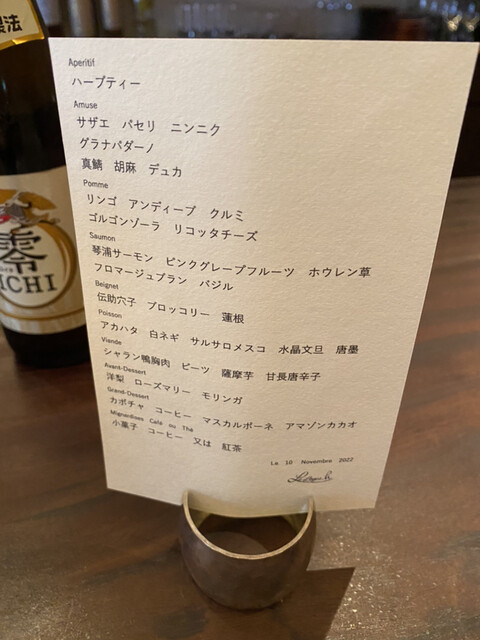 製法
零
ICHI
Aperitif
ハーブティー
Amuse
サザエ　パセリ　ニンニク
グラナパダーノ
真鯖　胡麻　デュカ
Pomme
リンゴ　アンディーブ　クルミ
ゴルゴンゾーラ　リコッタチーズ
Saumon
琴浦サーモン　ピンクグレープフルーツ　ホウレン草
フロマージュブラン　バジル
Beignet
伝助穴子　ブロッコリー　蓮根
Poisson
アカハタ　白ネギ　サルサロメスコ　水晶文旦　唐墨
Viande
シャラン鴨胸肉　ビーツ　薩摩芋　甘長唐辛子
Avant-Dessert
洋梨　ローズマリー　モリンガ
Grand-Dessert
カボチャ　コーヒー　マスカルポーネ　アマゾンカカオ
Mignardises Café ou Thé
小菓子　コーヒー　又は　紅茶
Le 10 Novembre 2022